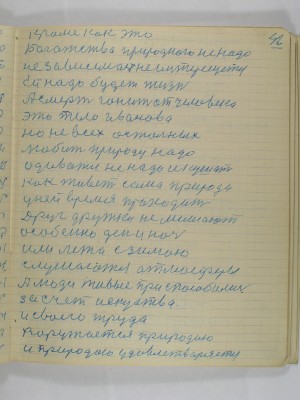 42
Кроме как это
Богатства природного не надо
независимая не
ей надо будет жить
А смерть гонит от человека
это тело Иванова
но не всех остальных
любить природу надо
одевать не надо и кушать
Как живет сама природа
у ней время проходит
друг дружки не мешают
особенно день и ноч
или лета с зимою
слушается атмосферы
А люди живые приспособилис
за счет искуства.
и своего труда
Воружается природою
и природою удовлетваряется